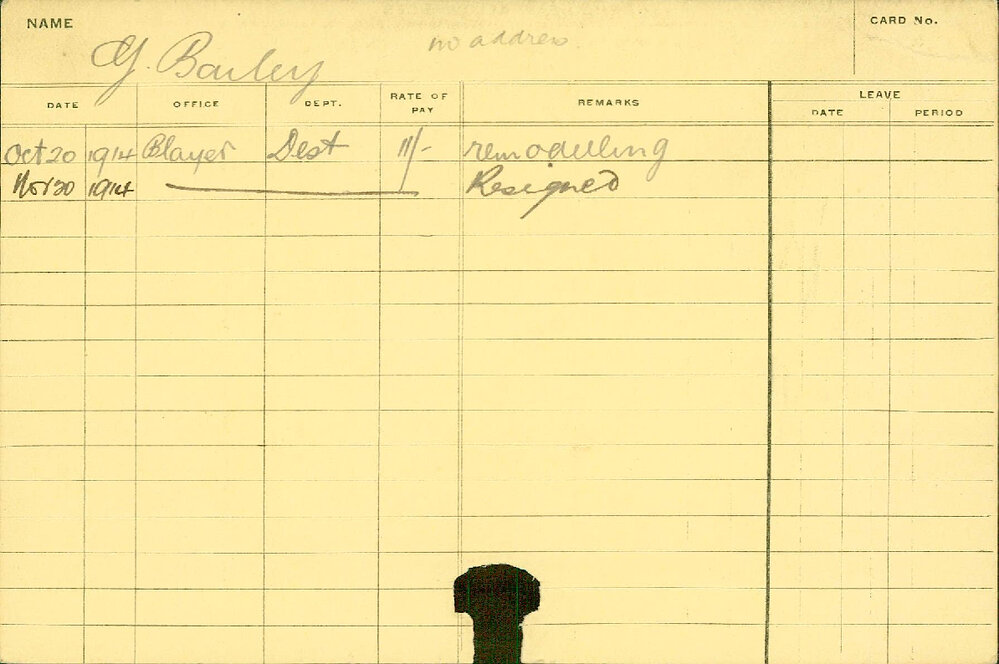 NAME
CARD No.
G. Bailey
no address.
DATE OFFICE DEPT. RATE OF PAY REMARKS LEAVE
DATE PERIOD
Oct 20 1914 Dest 11/- remodelling
Nov 20 1914 Resigned